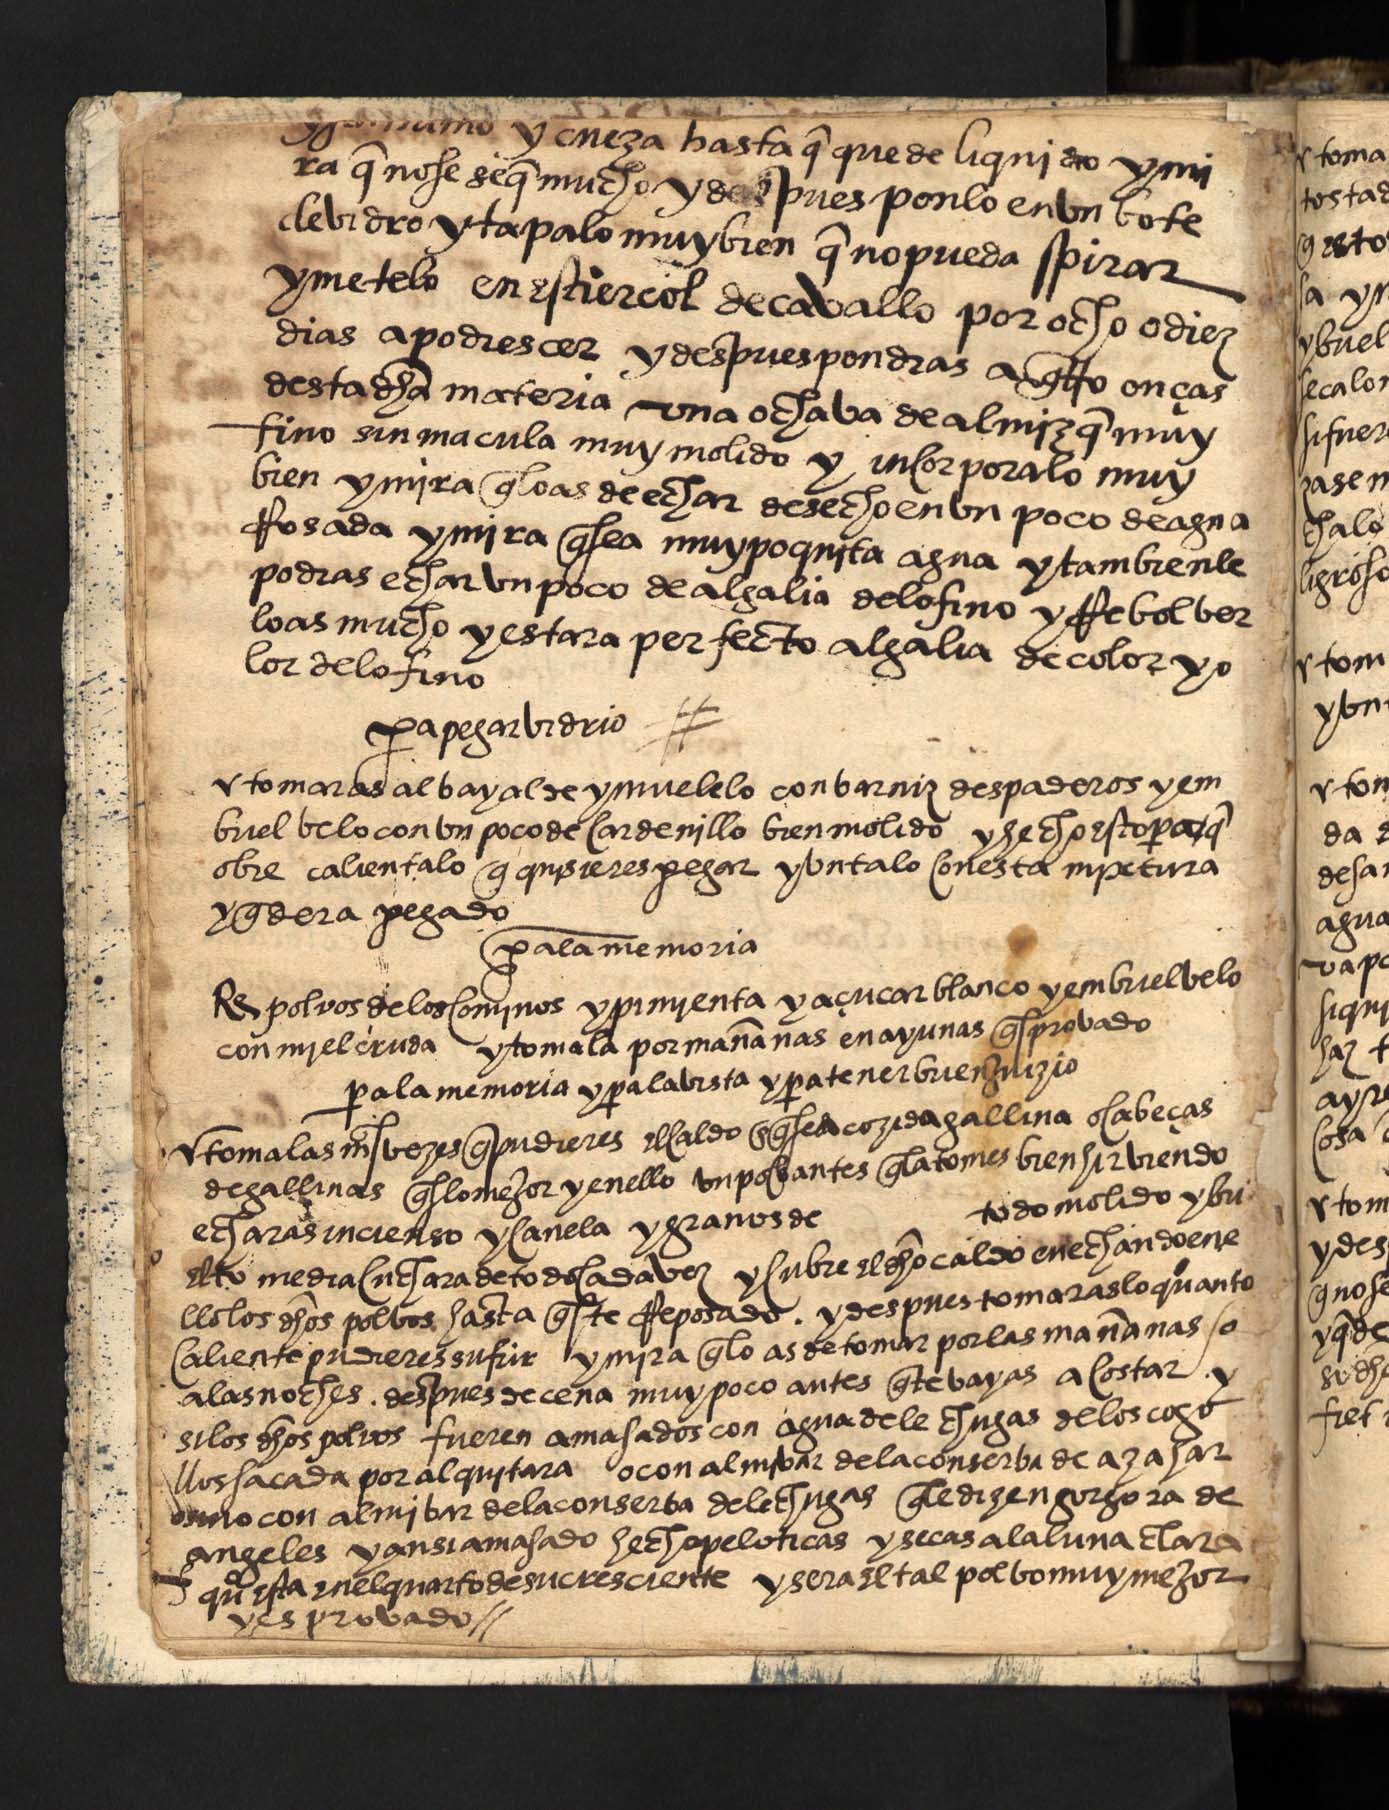 y cueza hasta q̄ quede liquido y mi
ra q̄ no se seq̄ mucho y despues ponlo en vn bote
de vidro y tapalo muy bien q̄ no pueda spirar
y metelo en estiercol de cavallo por ocho o diez
dias a podrescer y despues pondras a q̄tro onças
desta dħa materia vna ochava de almizq̄ muy
fino sin macula muy molido y incorporalo muy
bien y mira q̄ lo as de echar desecho en vn poco de agua
rrosada y mira q̄ sea muy poquita agua y tambien le
podras echar vn poco de algalia de lo fino y rrebolber
lo as mucho y estara perfecto algalia de color y o
lor de lo fino
pa pegar vidrio #
r tomaras albayalde y muelelo con barniz despaderos y em
buelbelo con vn poco de cardenillo bien molido y hecho esto
obre calientalo q̄ quisieres pegar y vntalo con esta mixtura
y q̄dera pegado
pa la memoria
Re polvos de los cominos y pimienta y açucar blanco y embuelvelo
con miel cruda y tomala por mañanas en ayunas q̄s provado
pa la memoria y pa la vista y pa tener buen juizio
r toma las m̄s vezes q̄ pudieres el caldo q̄ sea cozida gallina o cabeças
de gallinas q̄s lo mejor y en ello vn poc antes q̄ la tomes bien hirviendo
echaras incienso y canela y granos de todo molido y bu
elto media cuchara de todo cada vez y cubre el dħo caldo en echando en e
llo los dħos polvos hasta q̄ste rreposado. y despues tomaraslo quanto
caliente pudieres sufrir y mira q̄ lo as de tomar por las mañanas / o
a las noches. despues de cena muy poco antes q̄ te vayas a costar. y
si los dħos polvos fueren amasados con agua de lechugas de los cogo
llos sacada por alquitara o con almibar de la conserba de azahar
o sino con almibar de la conserba de lechugas q̄ le dizen gorgora de
angeles y ansi amasado hecho peloticas y secas a la luna clara
qdo esta en el quarto de su cresciente y sera el tal polbo muy mejor
y es provado //